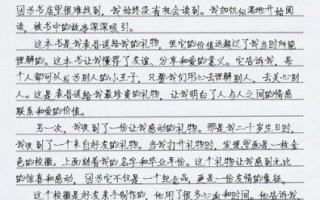 因书书店里很难找到，我始终没有机会读到。我如饥似渴地开始阅
读，被书中的故事深深吸引。
这本书是我表哥送给我的礼物，但它的价值远超过了我当时所能
理解的。这本书让我理解了友谊、分享和爱的意义。它告诉我，每
个人都可以成为别人的小王子，只要我们用心去理解别人，去关心别
人。这是表哥送给我最珍贵的礼物，让我明白了人与人之间的情感
联系和爱的价值。
另一次，我收到了一份让我感动的礼物。那是我二十岁生日时，
我收到了一个来自好友的礼物。当我打开礼物时，发现里面是一枚金
色的校徽，上面刻着我的名字和毕业年份。这个礼物让我感到无比
的惊喜和感动，因为它不仅是一个纪念品，更是一份友情的象征。
这个校徽是好友亲手制作的，他用了很多心血和时间。他告诉我，